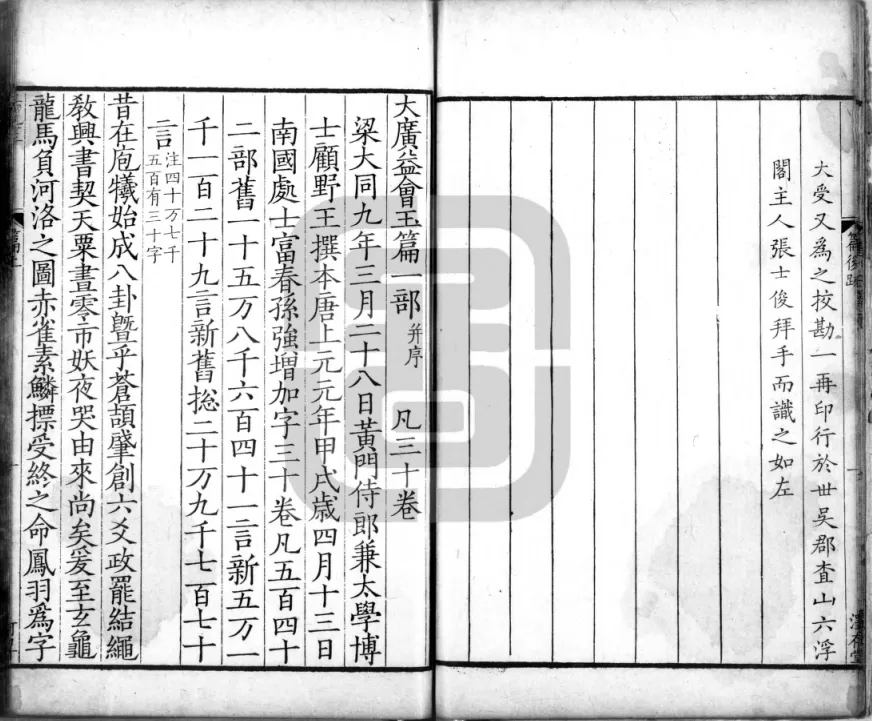 大受又爲之挍勘一再印行於丗吳郡查山六浮
閣主人張士俊拜手而識之如左
大廣益會玉篇一部 并序 凡三十卷
梁大同九年三月二十八日黃門侍郎兼太學博
士顧野王撰本唐上元元年甲戌歲四月十三日
南國處士富春孫強增加字三十卷凡五百四十
二部舊一十五万八千六百四十一言新五万一
千一百二十九言新舊捴二十万九千七百七十
言 注四十万七千
五百有三十字
昔在庖犧始成八卦曁乎蒼頡肇創六爻政罷結繩
敎興書契天粟晝零市妖夜哭由來尚矣爰至玄龜
龍馬負河洛之圖赤雀素鱗摽受終之命鳳羽爲字